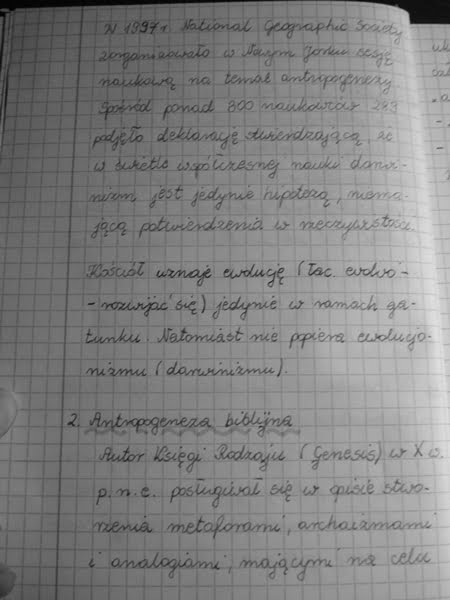 W 1997 r. National Geographic Society
zorganizowało w Nowym Jorku sesję
naukową na temat antropogenezy.
Spośród ponad 300 naukowców 283
podjęło deklarację stwierdzającą, że
w świetle współczesnej nauki darwi-
nizm jest jedynie hipotezą, niema-
jącą potwierdzenia w rzeczywistości.
Kościół uznaje ewolucję (łac. evolvo -
- rozwijać się) jedynie w ramach ga-
tunku. Natomiast nie popiera ewolucjo-
nizmu (darwinizmu).
2. Antropogeneza biblijna
Autor Księgi Rodzaju (Genesis) w X w.
p.n.e. posługiwał się w opisie stwo-
rzenia metaforami, archaizmami
i analogiami, mającymi na celu